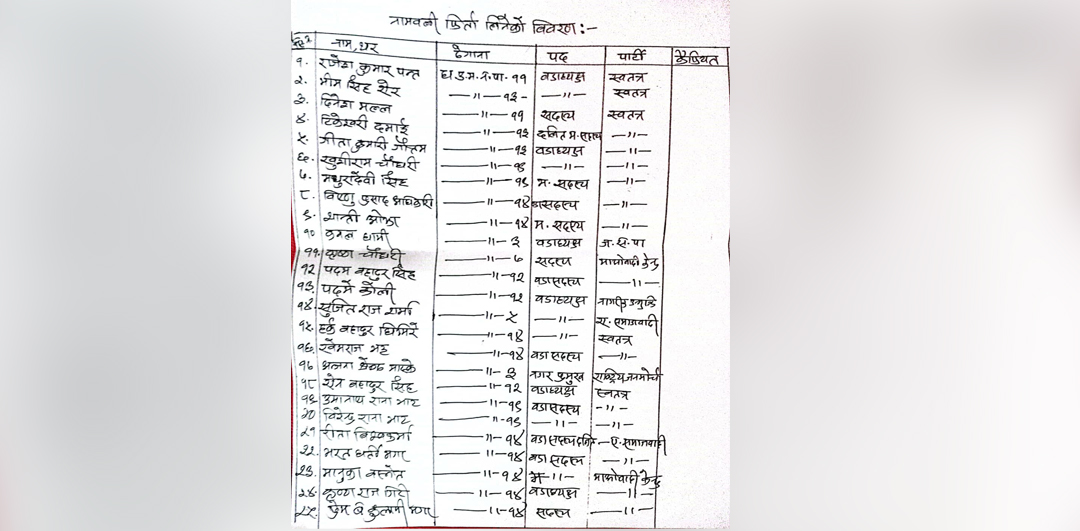 नामवली फिर्ता लिनेको विवरण :-
नाम, थर ठेगाना पद पार्टी कैफियत
१. राजेश कुमार पन्त घो.उ.म.न.पा. ११ वडाध्यक्ष स्वतन्त्र
२. भीम सिंह सेर —"— १३ - —"— स्वतन्त्र
३. दिनेश मल्ल —"— ११ सदस्य स्वतन्त्र
४. टिकेश्वरी दमाई —"— १३ दलित म. सदस्य —"—
५. गीता कुमारी गौतम —"— १३ वडाध्यक्ष —"—
६. खुशीराम चौधरी —"— —"— —"—
७. मथुरादेवी सिंह —"— म. सदस्य —"—
८. विष्णु प्रसाद अधिकारी —"— १४ सदस्य —"—
९. शान्ती ओझा —"— १४ म. सदस्य —"—
१० कमल —"— ३ वडाध्यक्ष ज.स.पा
११. कृष्णा चौधरी —"— ७ सदस्य माओवादी केन्द्र
१२ पदम बहादुर सिंह —"— १२ वडा सदस्य —"—
१३. पदमे कामी —"— १२ वडाध्यक्ष नागरिक उन्मुक्ति
१४. सुजित राज शर्मा —"— ५ —"— ए. समाजवादी
१५. हर्क बहादुर घिमिरे —"— १४ —"— स्वतन्त्र
१६. खेमराज भट्ट —"— १४ वडा सदस्य —"—
१७ —"— ३ नगर प्रमुख राष्ट्रिय जनमोर्चा
१८ शेर बहादुर सिंह —"— १२ वडाध्यक्ष स्वतन्त्र
१९ राना भाट —"— वडा सदस्य —"—
२० राना भाट —"— —"— —"—
२१ रीता विश्वकर्मा —"— १४ वडा सदस्य दलित —ए. समाजवादी
२२. भरत मगर —"— १४ वडा सदस्य —"—
२३. बस्नेत —"— १४ म —"— माओवादी केन्द्र
२४. कृष्ण राज गिरी —"— १४ वडाध्यक्ष —"—
२५. प्रेम ब मगर —"— १४ सदस्य —"—